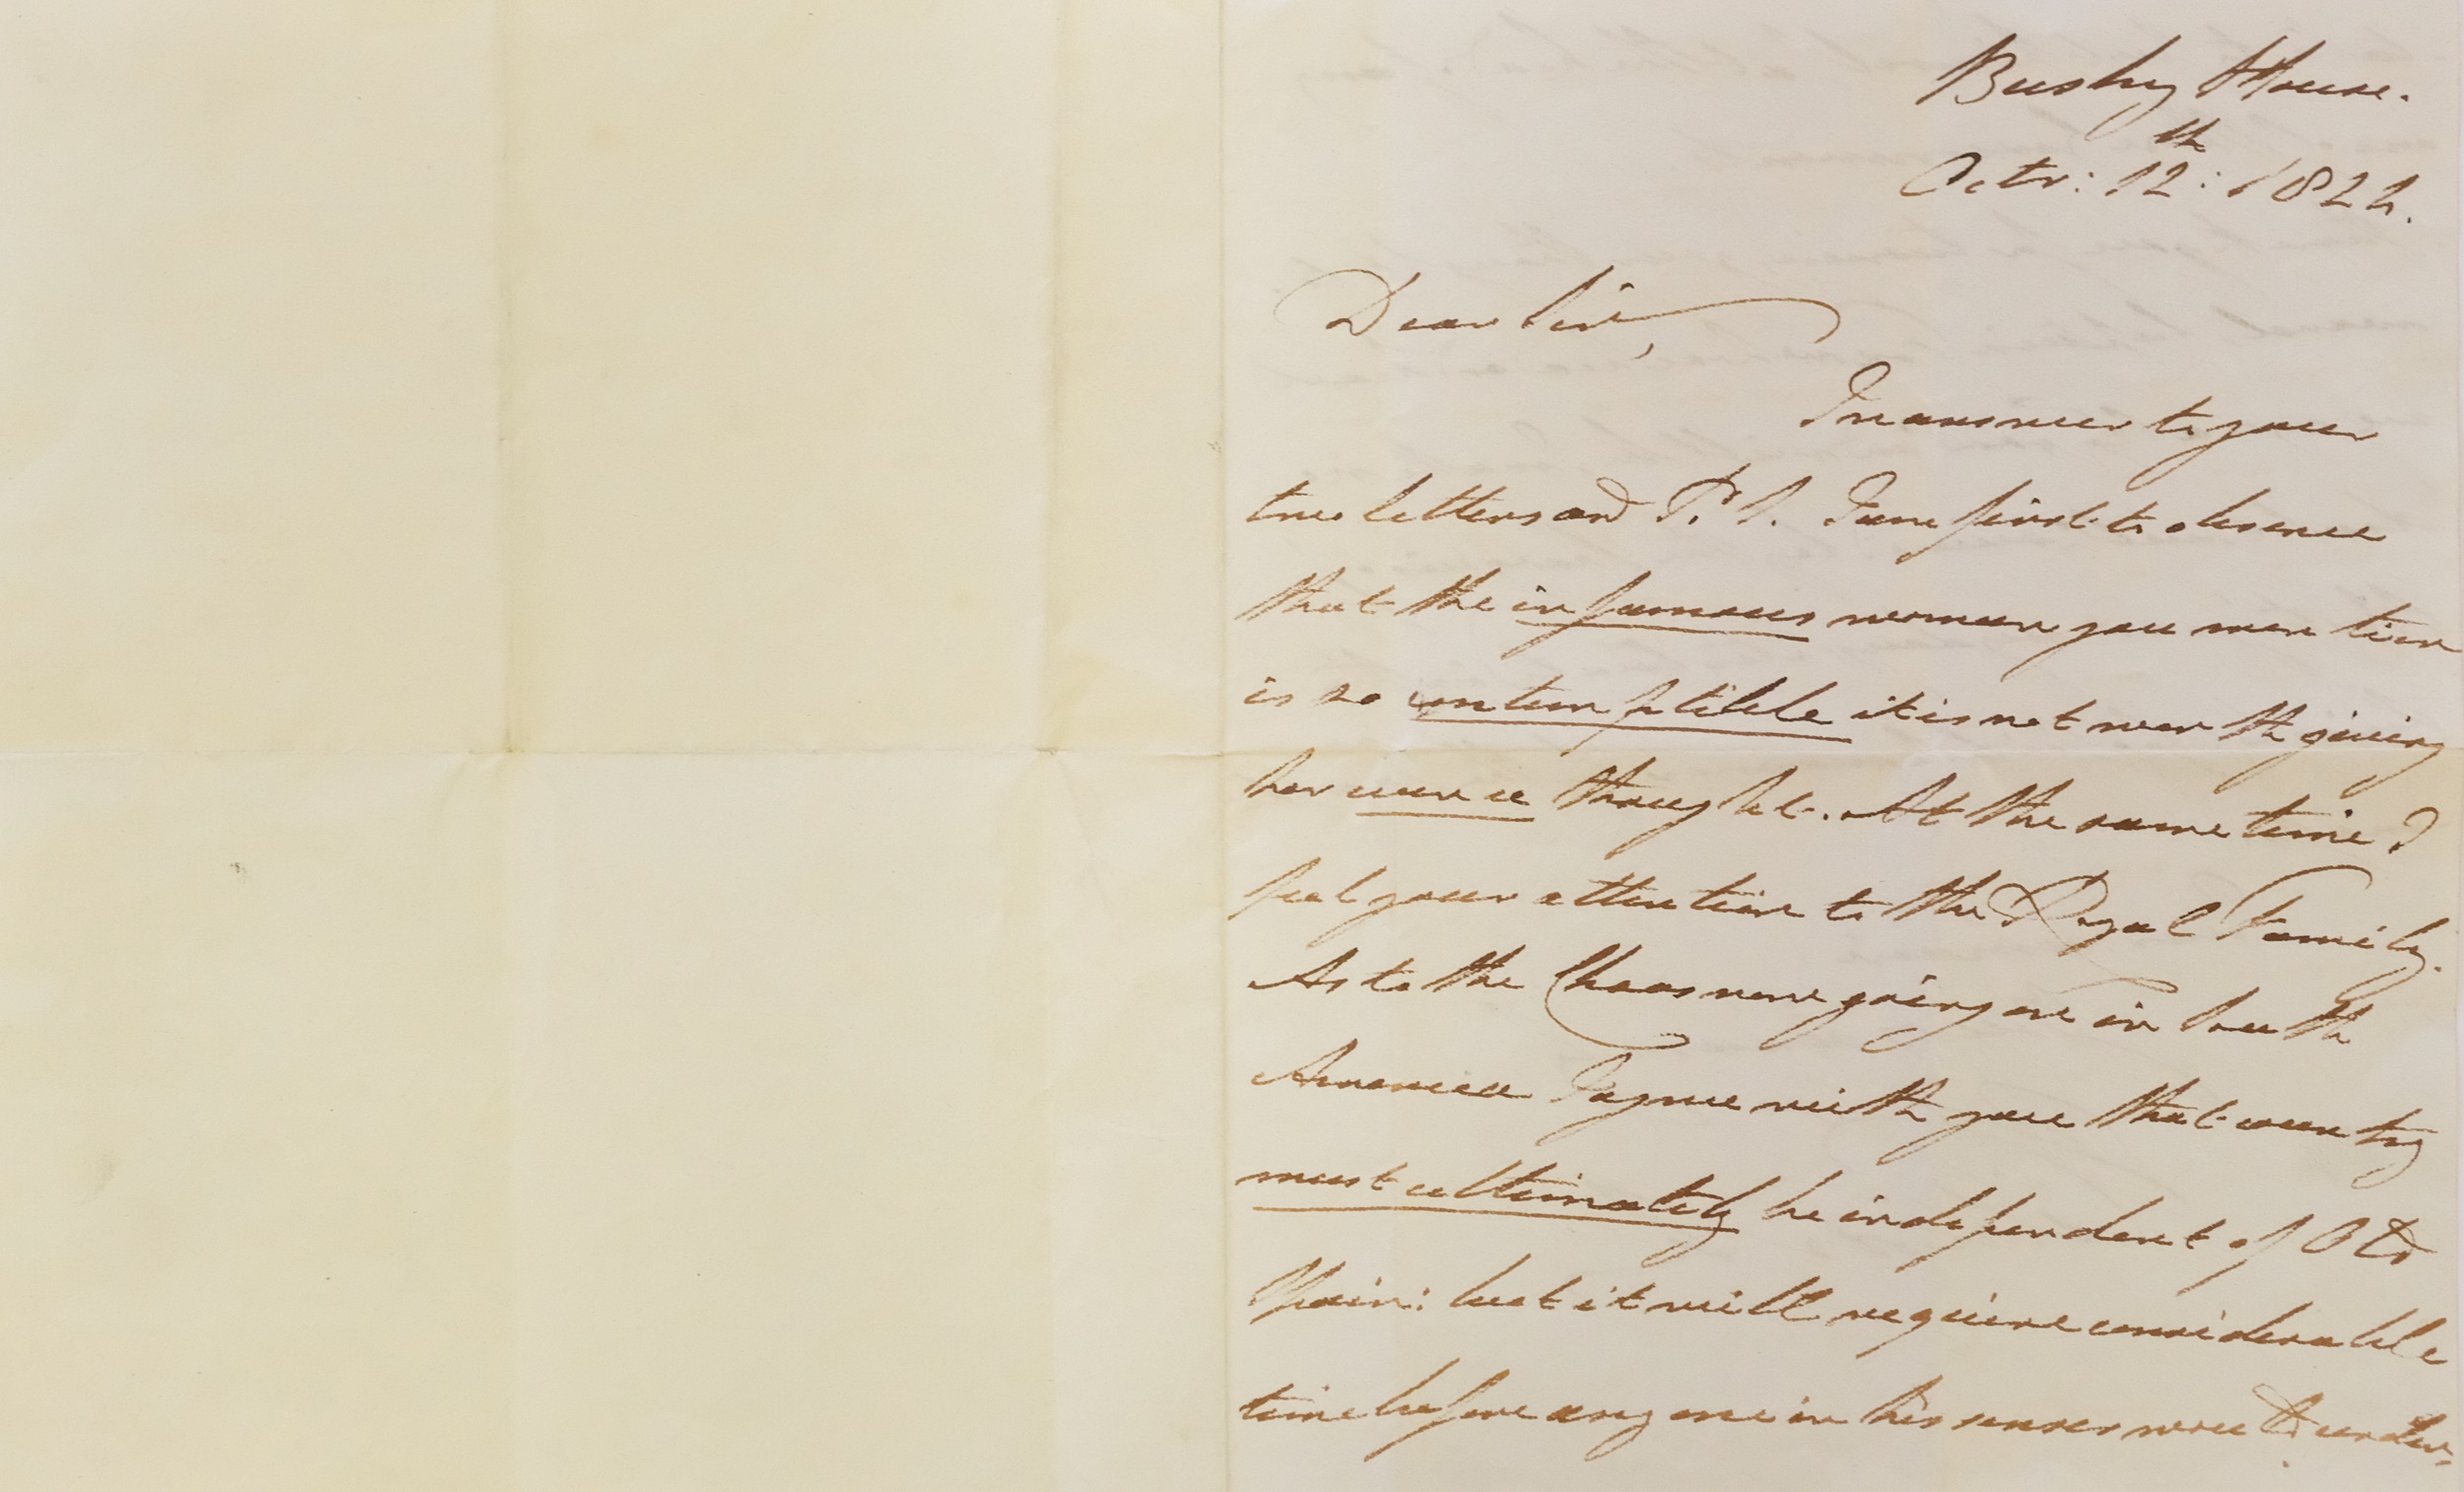 Bushy House.
Octr: 12th: 1822.
Dear Sir,
In answer to your
two letters and P. S. I am first to observe
that the infamous woman you mention
is so contemptible it is not worth giving
her even a thought. At the same time I
feel your attention to the Royal Family.
As to the Chaos now going on in South
America I agree with you that country
must ultimately be independent of Old
Spain: but it will require considerable
time before any one in his senses would under-